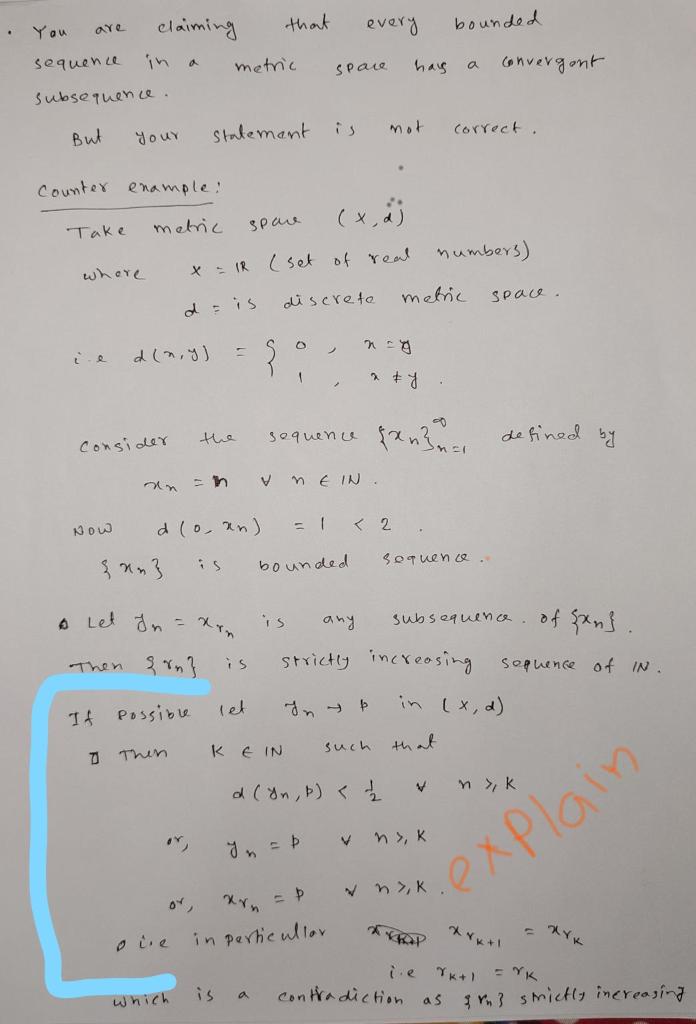 • You are claiming that every bounded
sequence in a metric space has a convergent
subsequence.
But your statement is not correct.
Counter example:
Take metric space (X, d)
where X = ℝ (set of real numbers)
d = is discrete metric space.
i.e d(x,y) = { 0 , x = y
1 , x ≠ y .
Consider the sequence {xn}∞n=1 defined by
xn = n ∀ n ∈ ℕ.
Now d(0, xn) = 1 < 2 .
{xn} is bounded sequence.
Let yn = xrn is any subsequence. of {xn}.
Then {rn} is strictly increasing sequence of ℕ.
If possible let yn → p in (X, d)
Then K ∈ ℕ such that
d(yn, p) < 1/2 ∀ n ≥ K
or, yn = p ∀ n ≥ K
or, xrn = p ∀ n ≥ K.
explain
i.e in perticullar xrK+1 = xrK
i.e rK+1 = rK
which is a contradiction as {rn} strictly increasing